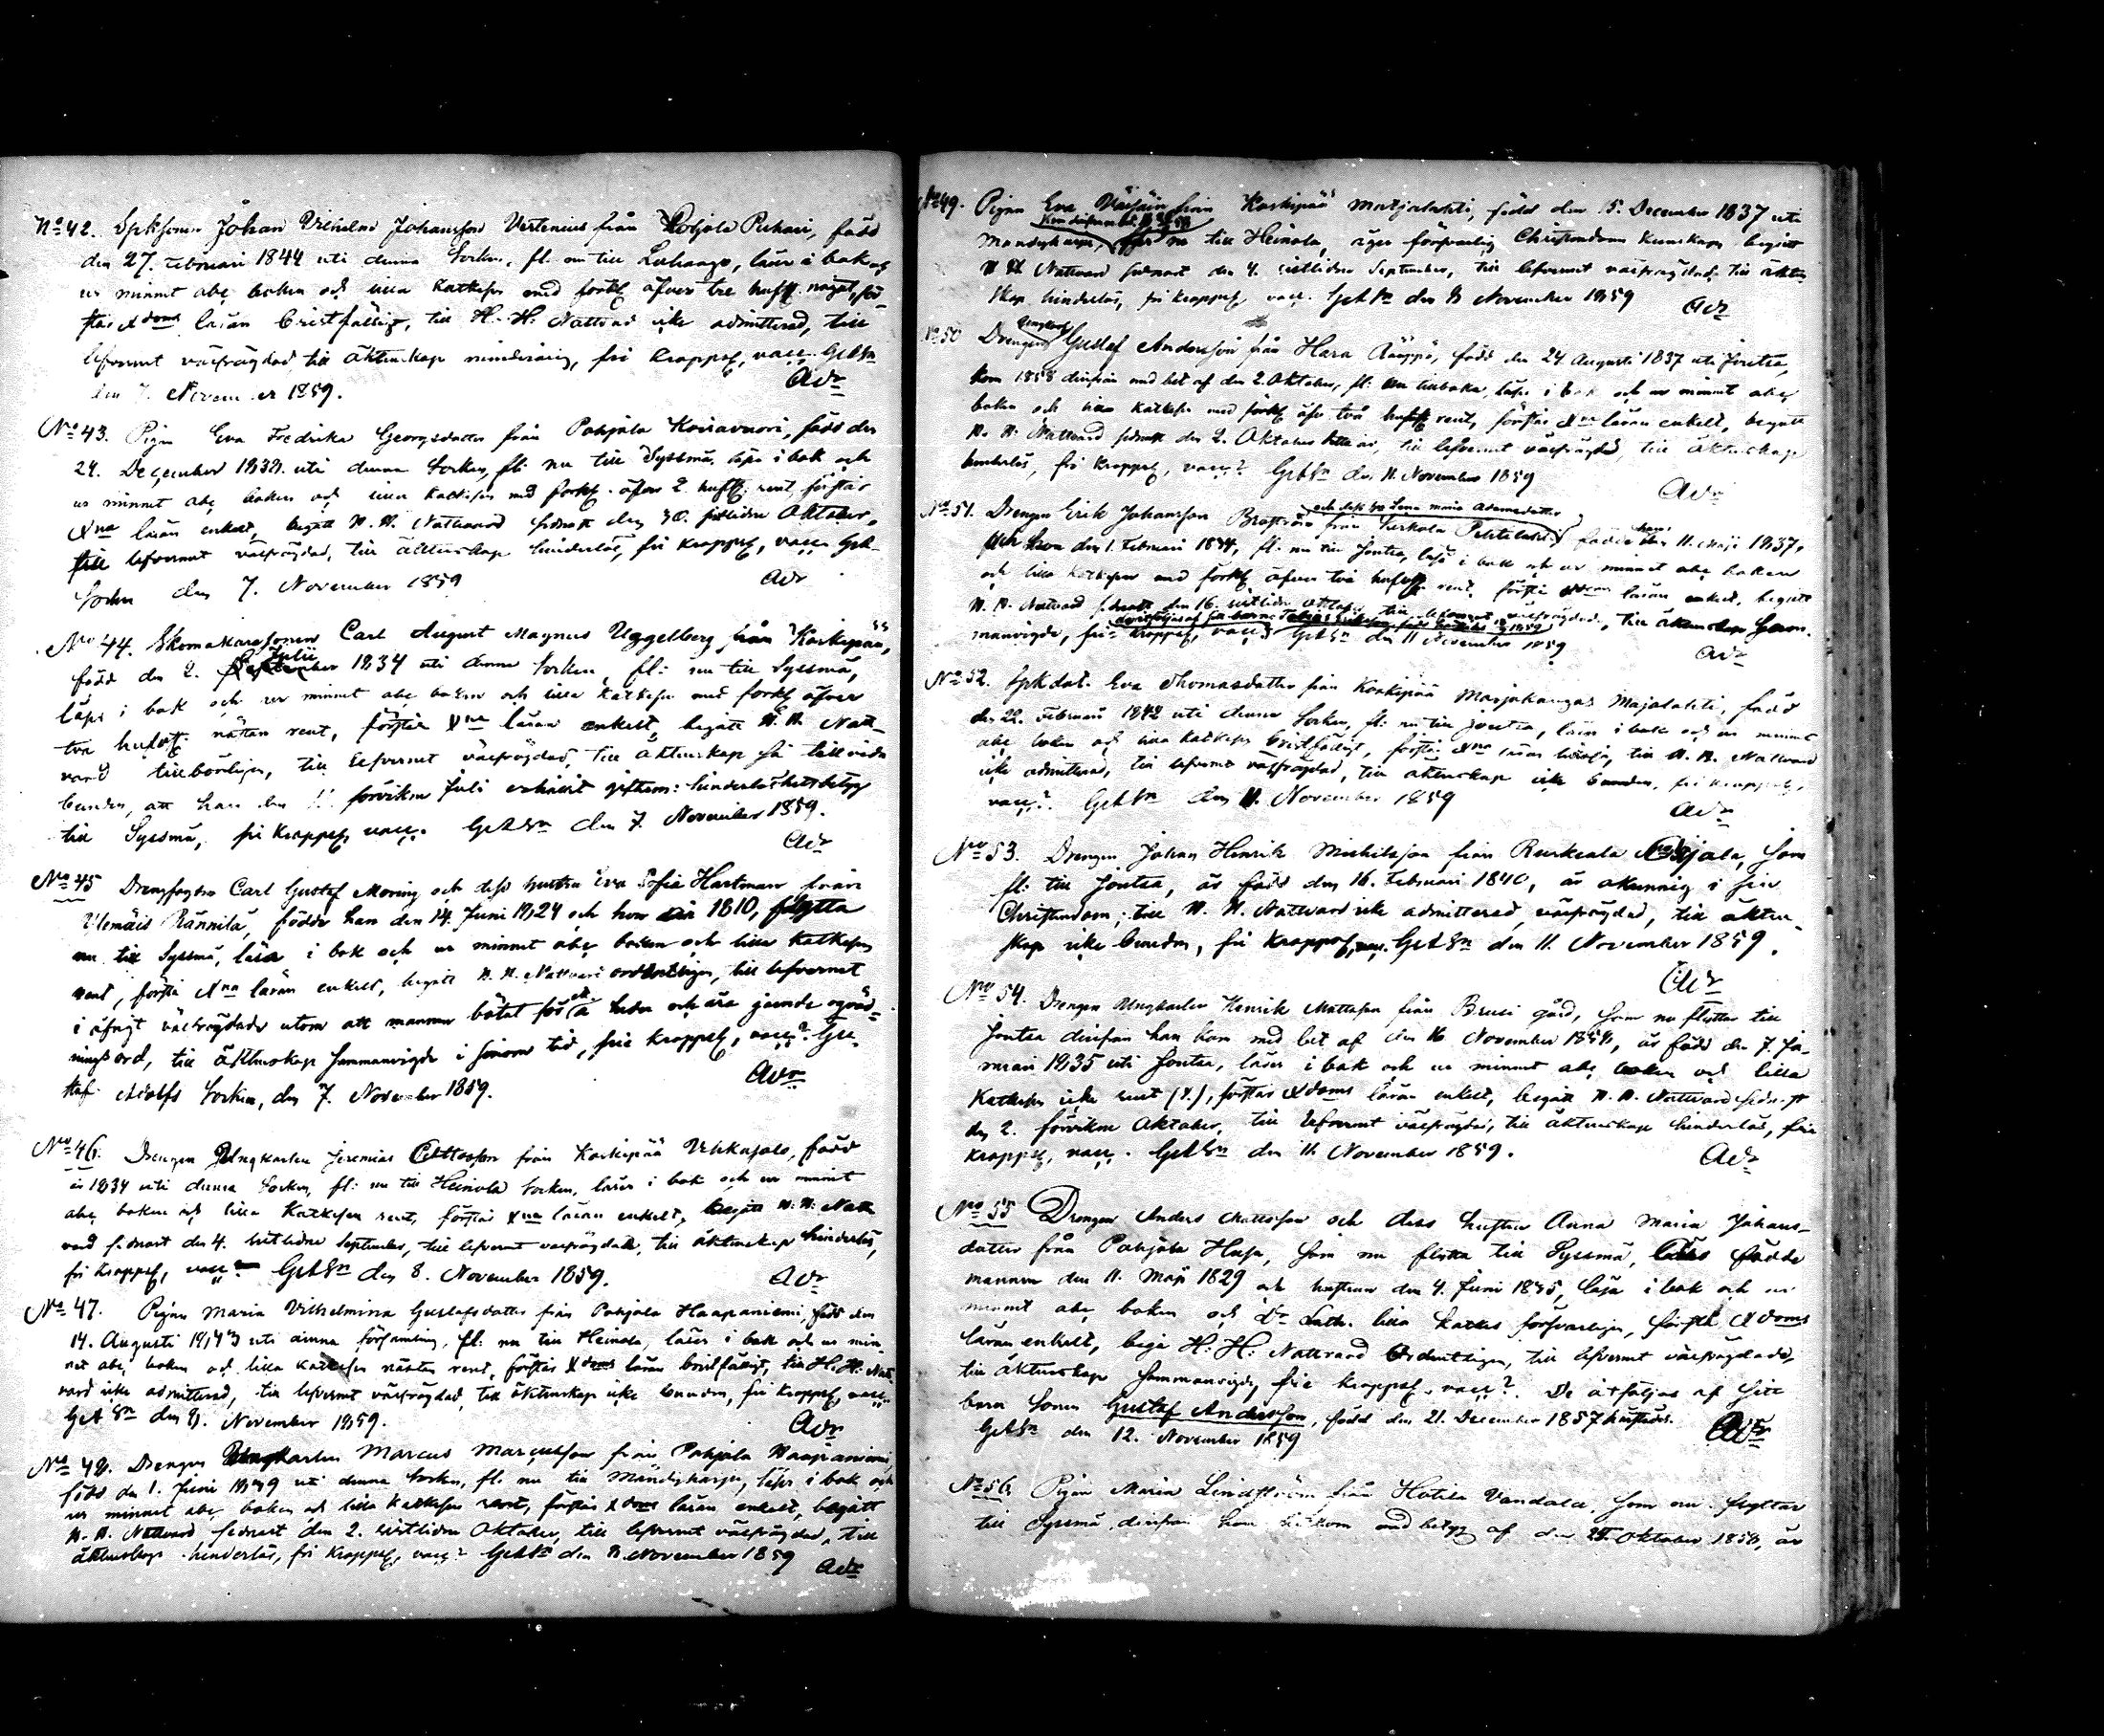 No 42. Spksonen Johan Vilhelm Johansson Vertenius från Pohjola Puhari, född
den 27. Februari 1844 uti denna Socken, fl. nu till Luhango, läser i bok och
ur minnet abc boken och lilla Katkesen med förkl. öfver tre hufst. något, för-
står Xdoms läran bristfälligt, till H. H. Nattvard icke admitterad, till
lefvernet välfrägdad till äktenskap minderårig, fri kropps, vacc. GAdSn
den 7. November 1859.
Adr
No 43. Pigan Eva Fredrika Georgsdotter från Pohjala Koiravuori, född den
24. December 1838 uti denna Socken, fl. nu till Syssmä, läser i bok och
ur minnet abc boken och lilla Katkesen med förkl. öfver 2. hufst. rent, förstår
Xna läran enkelt, begått H. H. Nattvard sednast den 30. sistlidne Oktober,
till lefvernet välfrägdad, till äktenskap hinderlös, fri kropps, vacc. GAd-
Socken den 7. November 1859
Adr
No 44. Skomakaresonen Carl August Magnus Uggelberg från Koskipää,
Julii
född den 2. 1834 uti denna Socken, fl: nu till Syssmä,
läser i bok och ur minnet abc boken och lilla Katkesen med förkl. öfver
två hufvst. nästan rent, förstår Xna läran enkelt, begått H. H. Natt-
vard tillbörligen, till lefvernet välfrägdad, till äktenskap så till vida
bunden, att han den förvikne Juli erhållit giftem: hinderlöshetsbetyg
till Syssmä, fri kropps, vacc. GAdSn den 7. November 1859.
Adr
No 45 Drengfogden Carl Gustaf Moring och dess hustru Eva Sofia Hartman från
Ylemäis Rännilä, födde han den 14. Juni 1824 och hon år 1810, flytta
nu till Syssmä, läsa i bok och ur minnet abc boken och lilla Katkesen
rent, förstå Xna läran enkelt, begått H. H. Nattvard ordentligen, till lefvernet
i öfrigt välfrägdade utom att mannen bötat för å heder och ära gående ogvär-
ningsord, till äktenskap sammanvigde i sinom tid, frie kropps, vacc? Gu-
staf Adolfs Socken, den 7. November 1859.
Adr
No 46. Drengen Ungkarlen Jeremias Ottosson från Koskipää Uhkapalo, född
år 1834 uti denna Socken, fl: nu till Heinola Socken, läser i bok och ur minnet
abc boken och lilla Katkesen rent, förstår Xna läran enkelt, begått H. H. Natt
vard sednast den 4. sistlidne September, till lefvernet välfrägdad, till äktenskap hinderlös,
fri kropps, vacc GAdSn den 8. November 1859.
Adr
No 47. Pigan Maria Vilhelmina Gustafsdotter från Pohjala Haapaniemi, född den
14. Augusti 1843 uti denna församling, fl. nu till Heinola, läser i bok och ur min-
net abc boken och lilla Katkesen nästan rent, förstår Xdoms läran bristfälligt, till H. H. Natt-
vard icke admitterad, till lefvernet välfrägdad, till äktenskap icke bunden, fri kropps, vacc.
GAdSn den 8. November 1859.
Adr
No 48. Drengen Ungkarlen Marcus Marcusson från Pohjala Haapaniemi,
född den 1. Juni 1839 uti denna Socken, fl. nu till Mändyharju, läser i bok och
ur minnet abc boken och lilla Katkesen rent, förstår Xdoms läran enkelt, begått
H. H. Nattvard sednast den 2. sistlidne Oktober, till lefvernet välfrägdad, till
äktenskap hinderlös, fri kropps, vacc? GAdSn den 8. November 1859
Adr
No 49. Pigan Eva från Koskipää Matjalahti, född den 15. December 1837 uti
Mändyharju, nu till Heinola, äger försvarlig Christendoms kunskap begått
H. H. Nattvard sednast den 4. sistlidne September, till lefvernet välfrägdad, till äkten-
skap hinderlös, fri kropps, vacc. GAdSn den 8 November 1859
Adr
No 50 Drengen Ungkarl Gustaf Andersson från Hara Aauppi, född den 24 Augusti 1837 uti Joutsa,
kom 1858 dirifrån med bet af den 2. Oktober, fl: nu tillbaka, läser i bok och ur minnet abc
boken och lilla Katkesen med förkl. öfver två hufst rent, förstår Xna läran enkelt, begått
H. H. Nattvard sednast den 2. Oktober detta år, till lefvernet välfrägdad, till äktenskap
hinderlös, fri kropps, vacc? GAdSn den 11. November 1859
Adr
och dess hu Lena Maria Adamsdotter
No 51. Drengen Erik Johansson Broström från Purkola Petäilahti, födde han den 11. Maji 1837,
och hon den 1. Februari 1834, fl: nu till Joutsa, läsa i bok och ur minnet abc boken
och lilla Katkesen med förkl. öfver två hufvst. rent, förstå Xna läran enkelt, begått
H. H. Nattvard sednast den 16. sistlidne Oktober, till lefvernet välfrägdade, till äktenskap samm-
manvigde, frie kropps, vacc? GAdSn den 11 November 1859
Adr
No 52. Spkdot. Eva Thomasdotter från Koskipää Marjokangas Majalahti, född
den 22. Februari 1842 uti denna Socken, fl: nu till Joutsa, läser i bok och ur minnet
abc boken och lilla Katkesen bristfälligt, förstår Xna läran, till H. H. Nattvard
icke admitterad, till lefvernet välfrägdad, till äktenskap icke bunden, fri kropps,
vacc? GAdSn den 11. November 1859
Adr
No 53. Drengen Johan Henrik Michelsson från Ruskeala Alasjala, som
fl: till Joutsa, är född den 16. Februari 1840, är okunnig i sin
Christendom; till H. H. Nattvard icke admitterad, välfrägdad, till äkten-
skap icke bunden, fri kropps, vacc. GAdSn den 11. November 1859.
Adr
No 54. Drengen Ungkarlen Henrik Mattsson från Brusi gård, som nu flyttar till
Joutsa dirifrån han kom med bet af den 16 November 1858, är född den 7. Ja-
nuari 1835 uti Joutsa, läser i bok och ur minnet abc boken och lilla
Katkesen icke rent (?.), förstår Xdoms läran enkelt, begått H. H. Nattvard sednast
den 2. förvikne Oktober, till lefvernet välfrägdad, till äktenskap hinderlös, fri
kropps, vacc. GAdSn den 11. November 1859.
Adr
No 55 Drengen Anders Mattsson och dess hustru Anna Maria Johans-
dotter från Pohjala Huja, som nu flytta till Syssmä, födde
mannen den 11. Maji 1829 och hustrun den 4. Juni 1835, läsa i bok och ur
minnet abc boken och Dr Luth. lilla Kateches försvarligen, förstå Xdoms
läran enkelt, begå H: H: Nattvard Ordentligen, till lefvernet välfrägdade,
till äktenskap sammanvigde, frie kropps, vacc?. De åtföljas af sitt
barn Sonen Gustaf Andersson, född den 21. December 1857 härstädes.
GAdSn den 12. November 1859
Adr
No 56. Pigan Maria Lindström från Hotila Vandala, som nu flyttar
till Syssmä, dirifrån hon hitkom med betyg af den 25. Oktober 1858, är